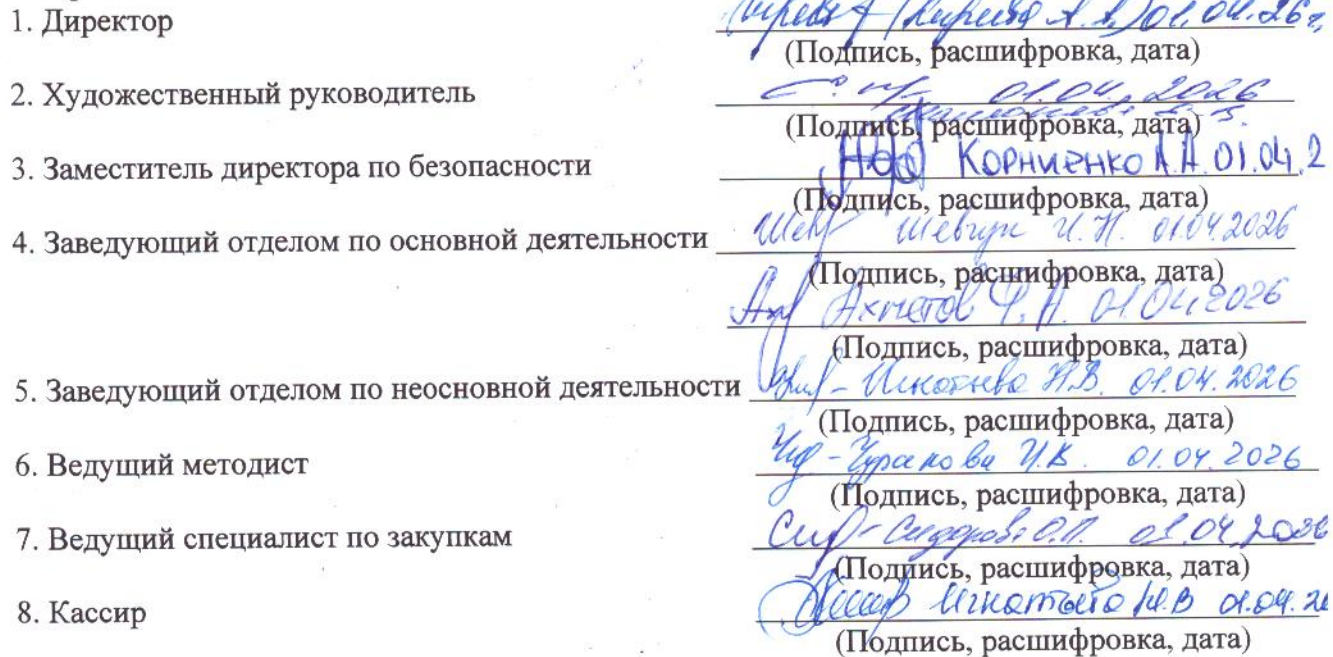 1. Директор 01.04.26г.
(Подпись, расшифровка, дата)
2. Художественный руководитель 01.04.2026
(Подпись, расшифровка, дата)
3. Заместитель директора по безопасности Корниенко А.А. 01.04.2
(Подпись, расшифровка, дата)
4. Заведующий отделом по основной деятельности Шевчук И.Н. 01.04.2026
(Подпись, расшифровка, дата)
Ахметов Ф.А. 01.04.2026
(Подпись, расшифровка, дата)
5. Заведующий отделом по неосновной деятельности Н.В. 01.04.2026
(Подпись, расшифровка, дата)
6. Ведущий методист Чуракова И.В. 01.04.2026
(Подпись, расшифровка, дата)
7. Ведущий специалист по закупкам Сидорова О.П. 01.04.2026
(Подпись, расшифровка, дата)
8. Кассир 01.04.2
(Подпись, расшифровка, дата)